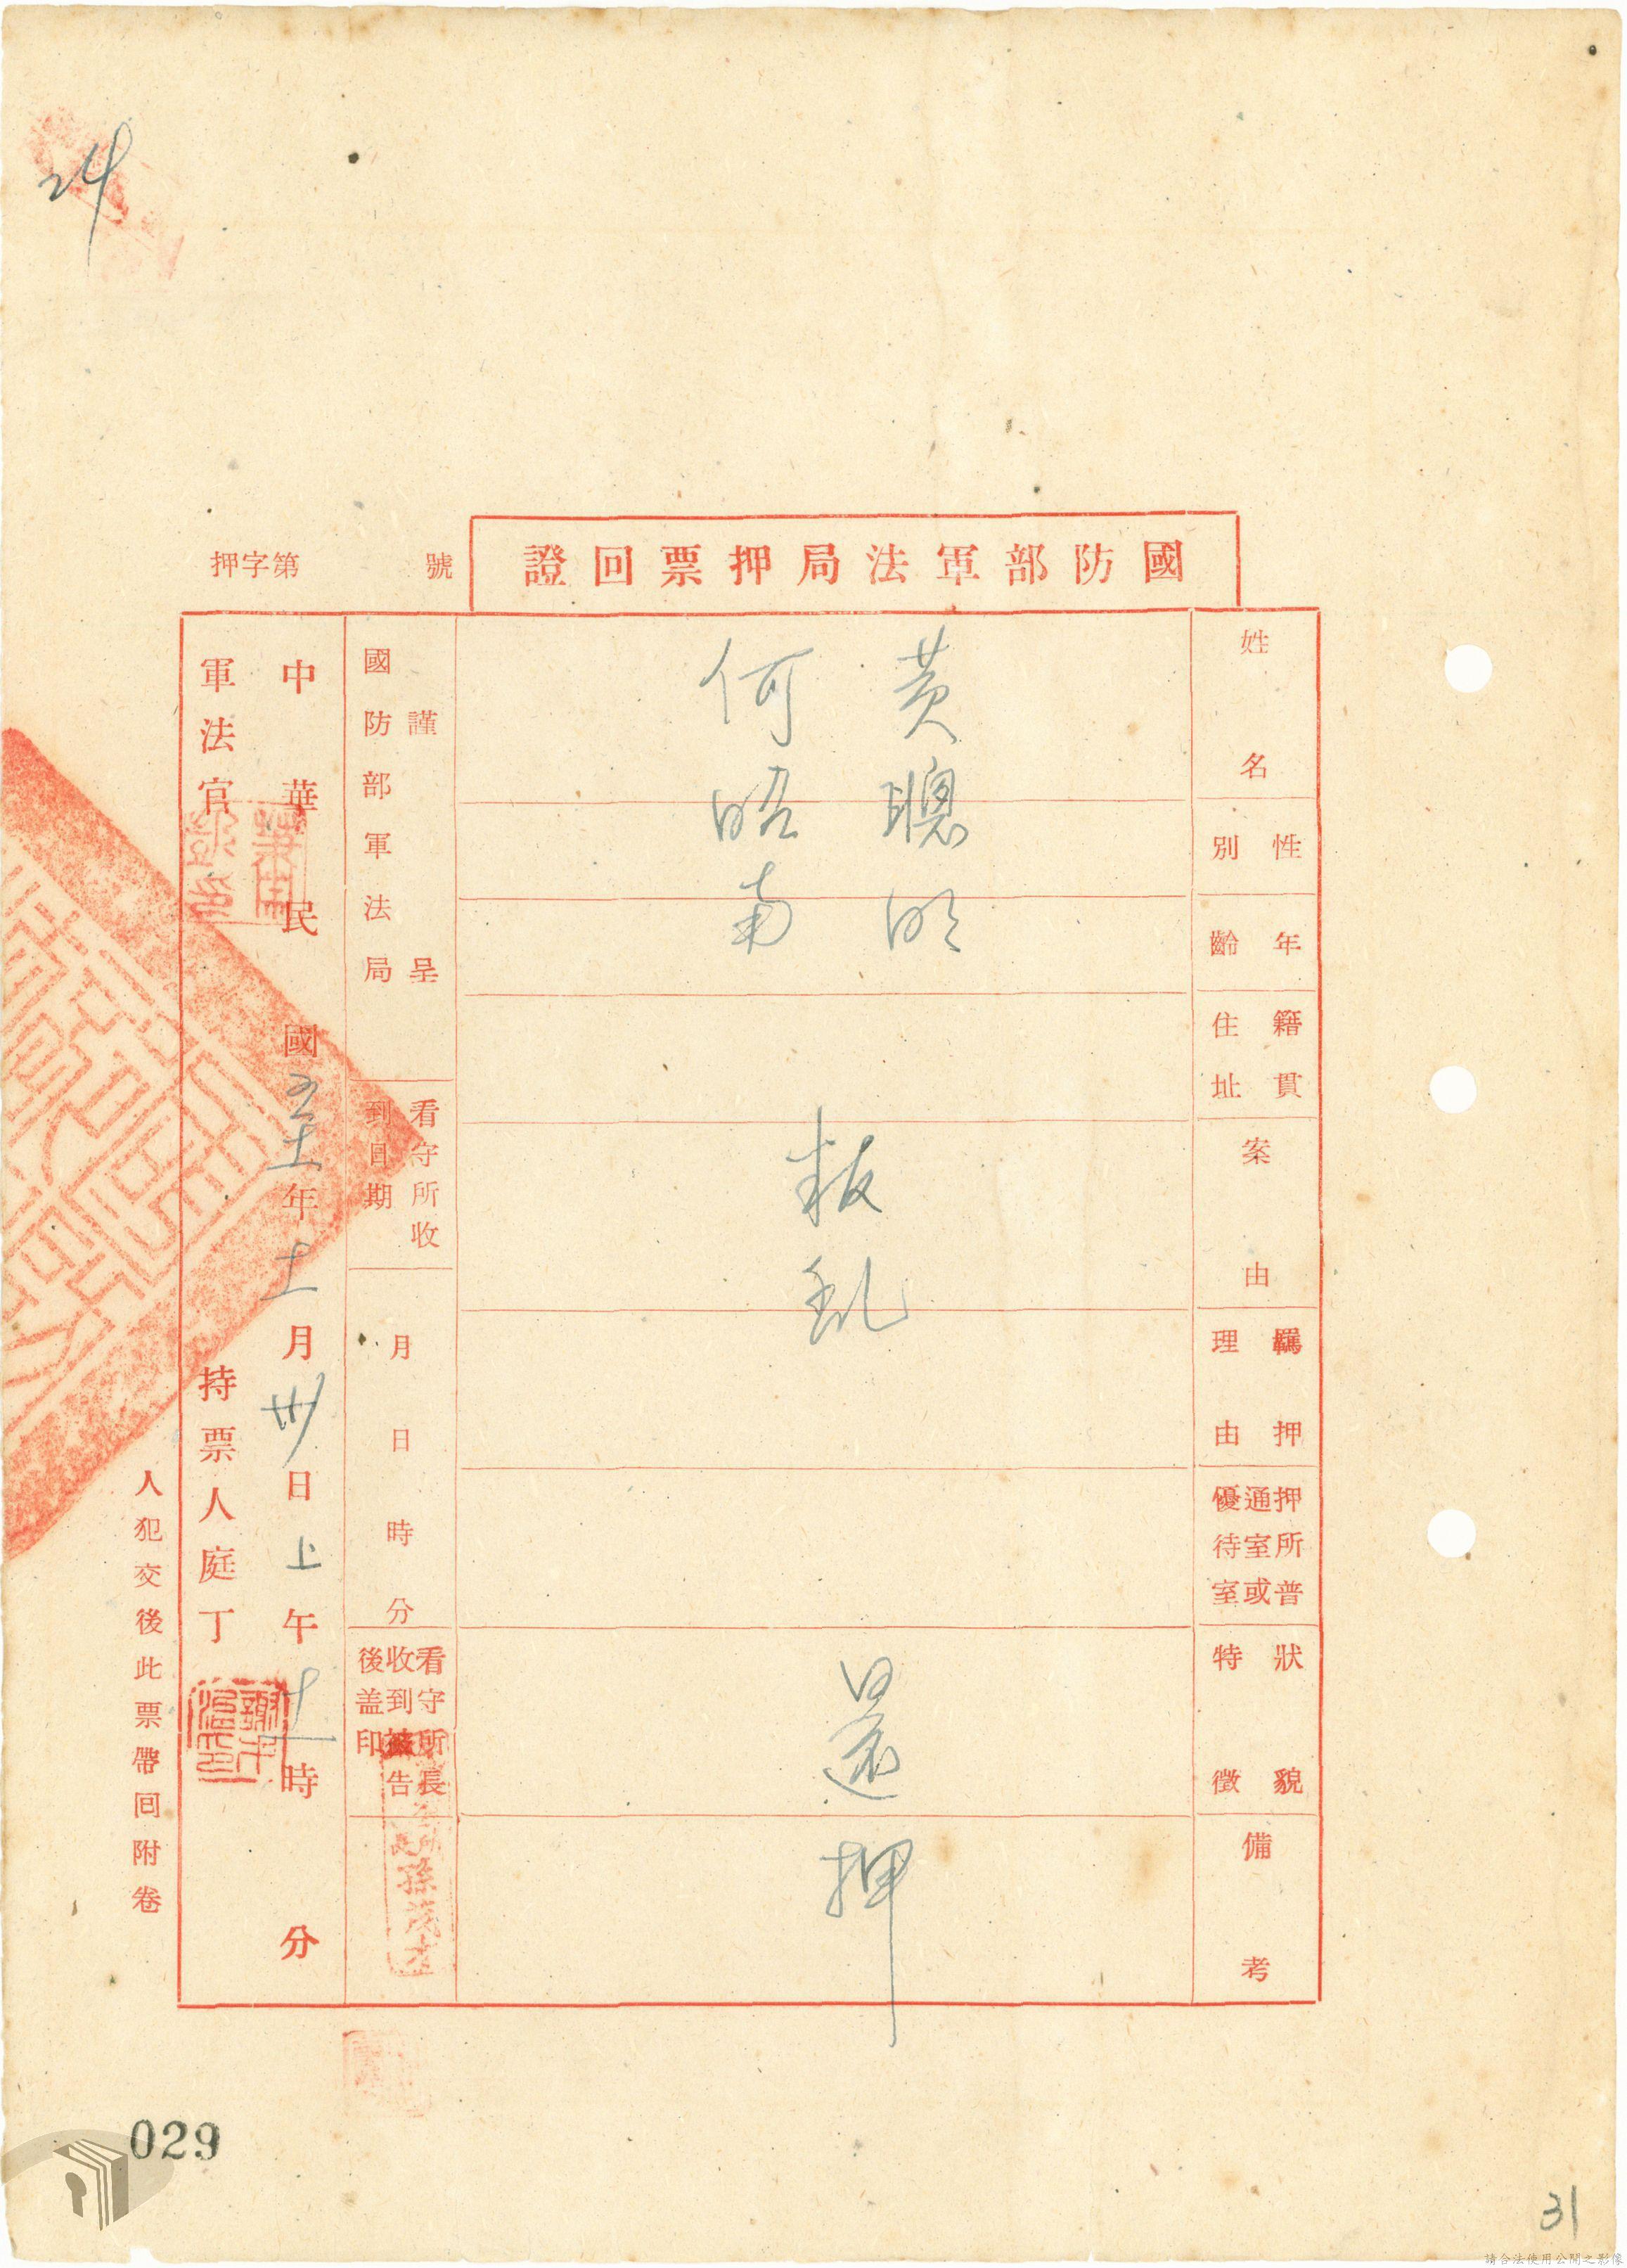 24
國防部軍法局押票回證
押字第 號
姓名
性別
年齡
籍貫
住址
案由
羈押
理由
押所普
通室或
優待室
狀貌
特徵
備考
黃聰明
何昭南
叛乱
還押
謹呈
國防部軍法局
看守所收
到日期
月日時分
看守所長
收到被告
後盖印
孫茂
中華民國五十年十一月卅日上午十一時分
軍法官
持票人庭丁
人犯交後此票帶回附卷
029
31
請合法使用公開之影像